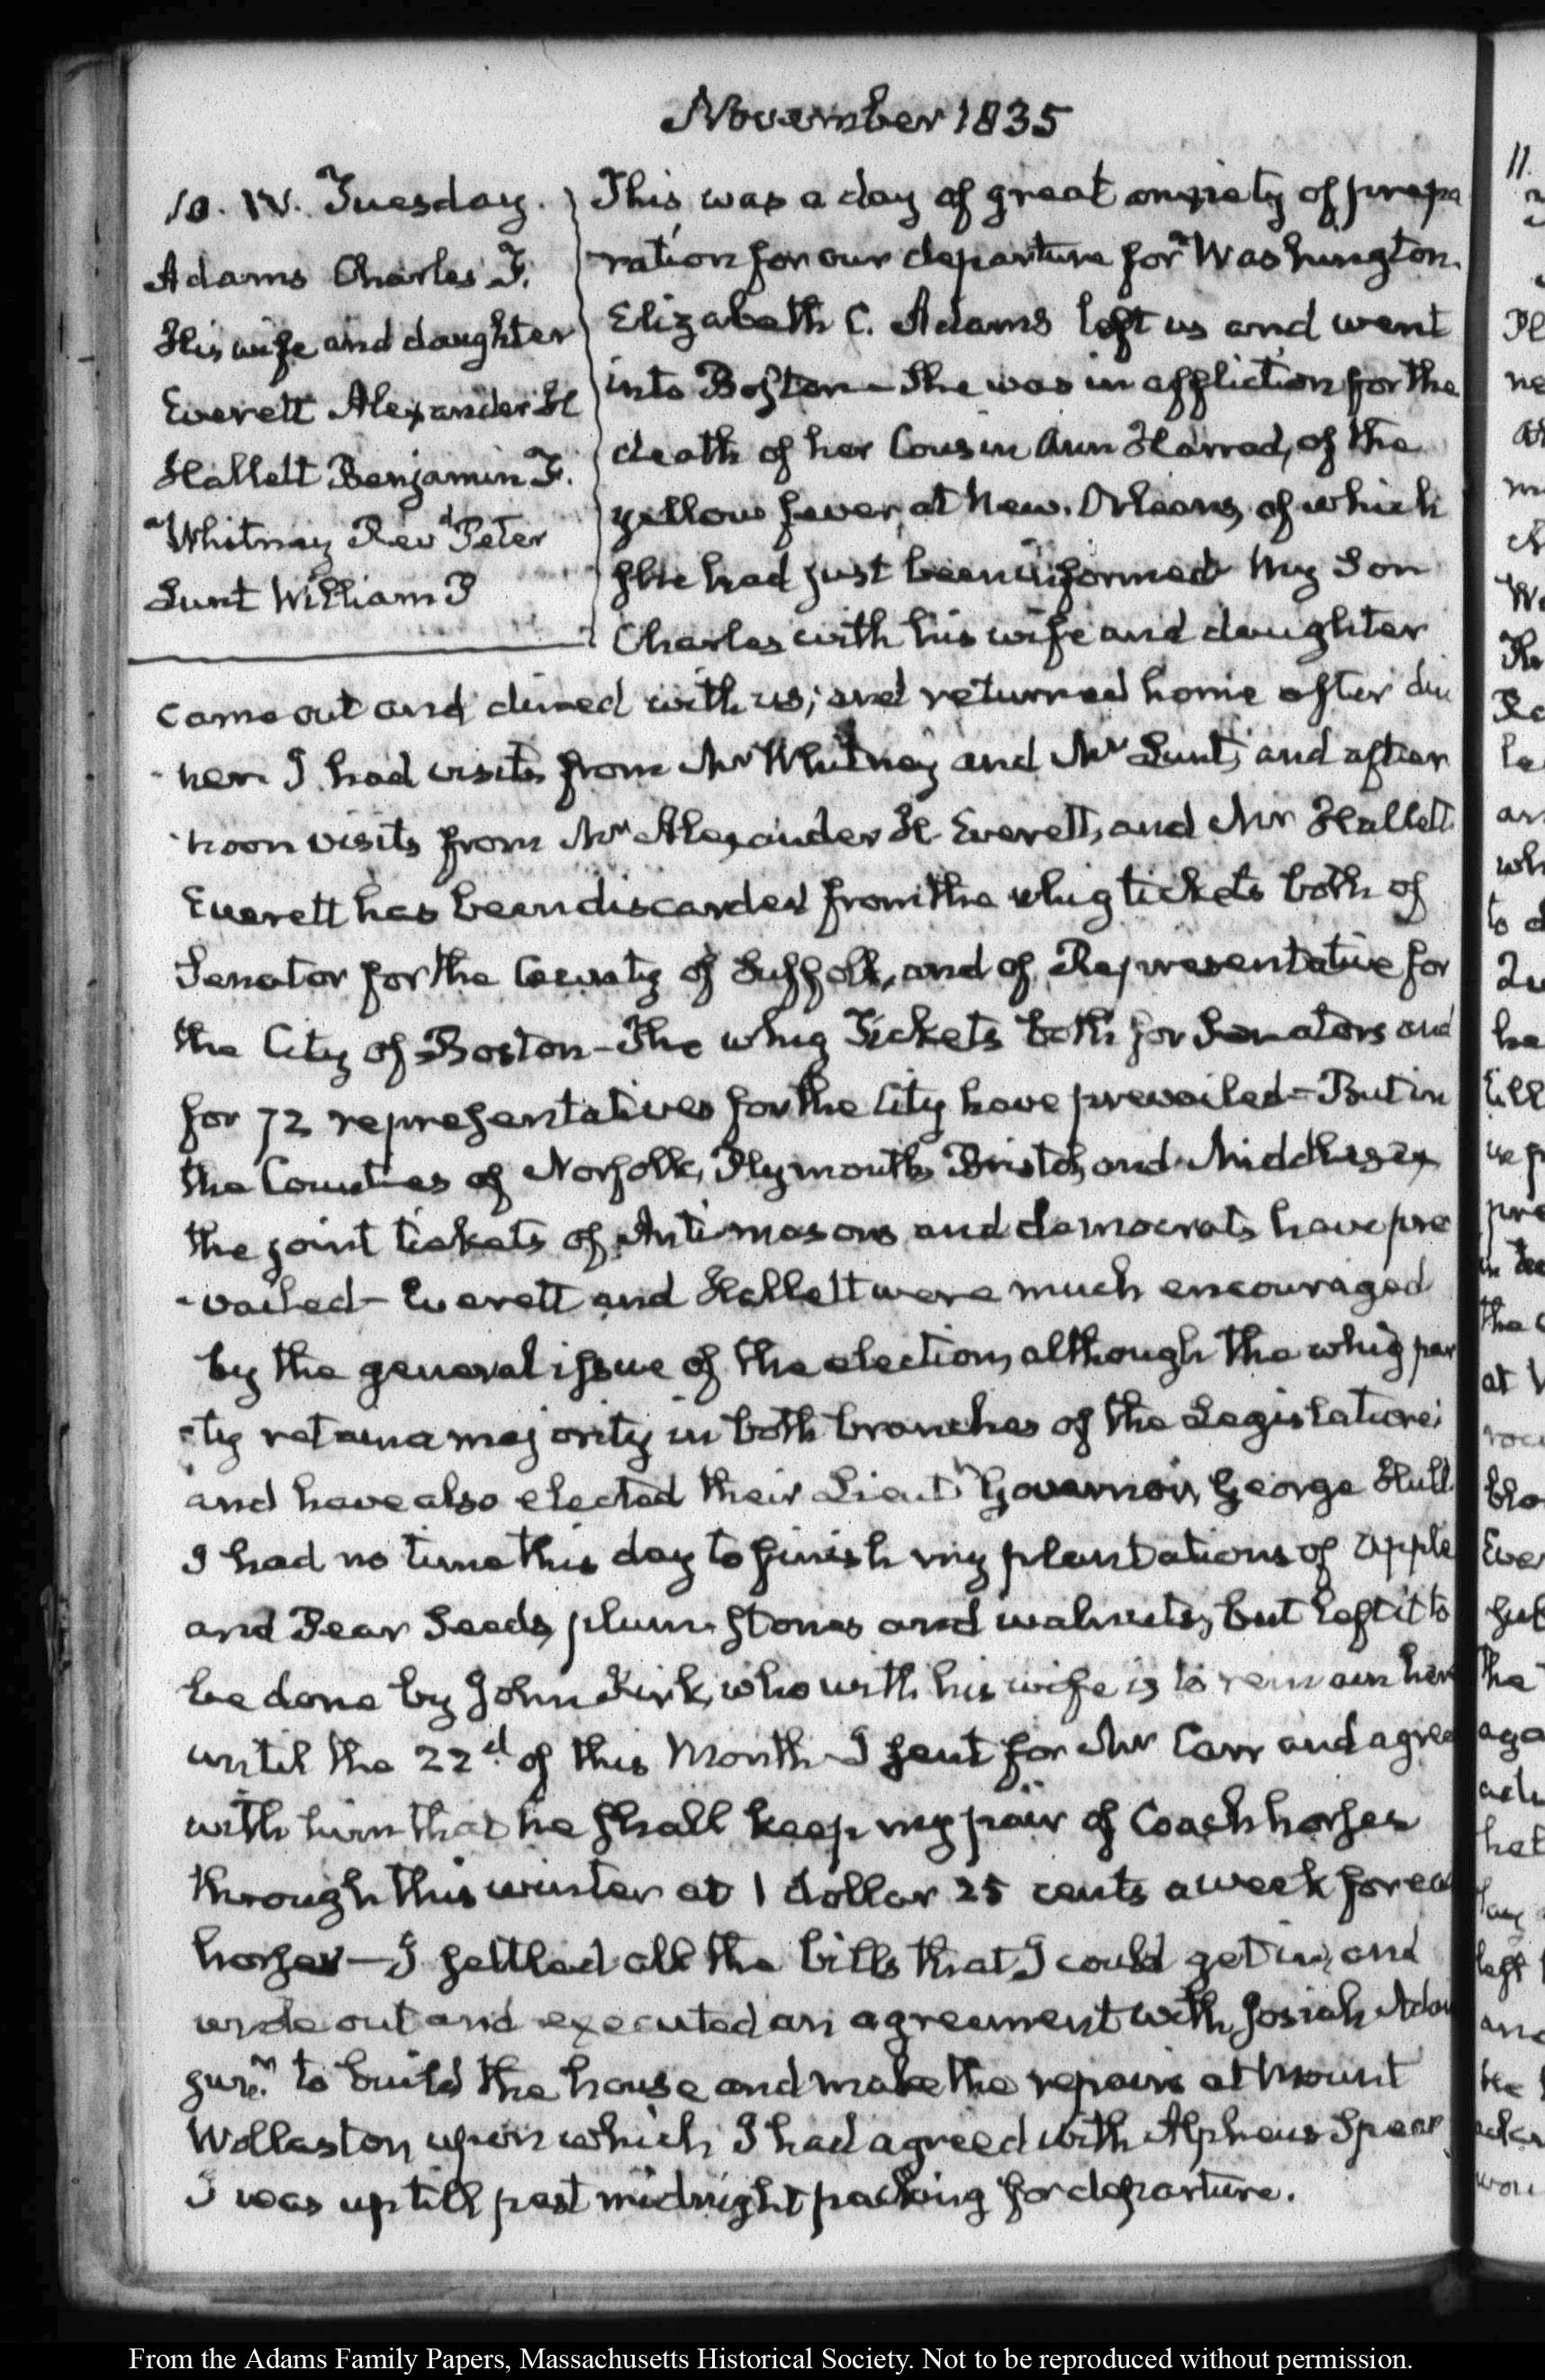 November 1835
10. IV. Tuesday.
Adams Charles F.
His wife and daughter
Everett Alexander H
Hallett Benjamin F.
Whitney Revd Peter
Lunt William P
This was a day of great anxiety of prepa
ration for our departure for Washington.
Elizabeth C. Adams left us and went
into Boston — She was in affliction for the
death of her Cousin Ann Harrod, of the
yellow fever, at New-Orleans, of which
she had just been informed — My Son
Charles with his wife and daughter
came out and dined with us; and returned home after din
-ner. I had visits from Mr Whitney and Mr Lunt; and after
-noon visits from Mr Alexander H Everett, and Mr Hallett.
Everett has been discarded from the whig tickets both of
Senator for the County of Suffolk, and of Representative for
the City of Boston — The whig Tickets both for Senators and
for 72 representatives for the City have prevailed — But in
the Counties of Norfolk, Plymouth, Bristol, and Middlesex
the joint tickets of Antimasons and democrats have pre
-vailed — Everett and Hallett were much encouraged
by the general issue of the election, although the whig par
-ty retain a majority in both branches of the Legislature;
and have also elected their Lieutt Governor, George Hull.
I had no time this day to finish my plantations of apple
and Pear Seeds, plum stones and walnuts, but left it to
be done by John Kirk, who with his wife is to remain here
until the 22d. of this Month — I sent for Mr Carr and agree
with him that he shall keep my pair of Coach horses
through this winter at 1 dollar 25 cents a week for ea
horses — I settled all the bills that I could get in, and
wrote out and executed an agreement with Josiah Adam
junr. to build the house and make the repairs at Mount
Wollaston, upon which I had agreed with Alpheus Spear
I was up till past midnight packing for departure.
11.
From the Adams Family Papers, Massachusetts Historical Society. Not to be reproduced without permission.